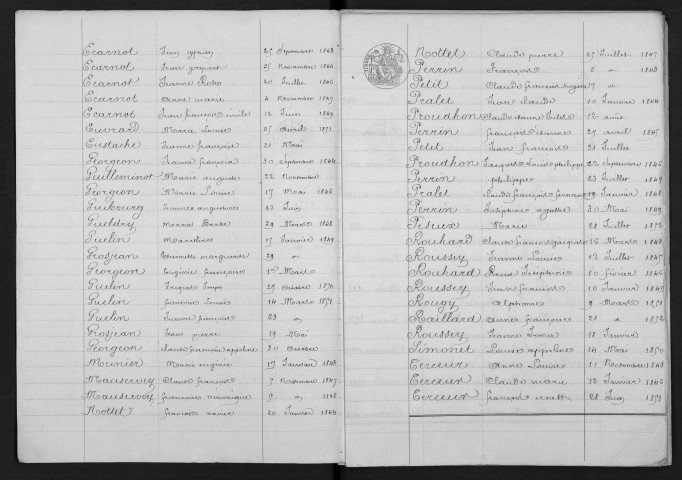 Ecarnot Jean cyprien 25 Septembre 1843
Ecarnot Jean 25 Novembre 1844
Ecarnot Jeanne Rose 20 Juillet 1846
Ecarnot Anne marie 4 Novembre 1847
Ecarnot Jean francois emile 12 Juin 1849
Euvrard Marie Louise 25 Avril 1851
Eustache Jeanne françoise 21 Mai
Georgeon Jeanne françoise 30 Septembre 1844
Guilleminot Marie auguste 22 Novembre
Georgeon Marie Louise 17 Mai 1846
Guibourg 23 Juin
Gueldry Marie 29 Mars 1848
Guelin Marceline 15 Janvier 1849
Grosjean marguerite 29 "
Georgeon Eugénie françoise Mars
Guelin 29 Octobre 1850
Guelin francois Louis 14 Mars 1851
Guelin Jeanne françoise 23 "
Grosjean Jean pierre 19 Mai
Georgeon Claude francois appoline 20 Octobre
Meunier Marie eugénie 17 Janvier 1843
Mauservey Claude françois 5 Novembre 1847
Mauservey francoise veronique 5 " 1848
Nottet francois xavier 20 Janvier 1844
Nottet Claude pierre 25 Juillet 1845
Perrin François 6 " 1843
Petit Claude francois 17 "
Pralet Jean claude 10 Janvier 1844
Proudhon 12 août
Perrin françois 27 avril 1845
Petit Jean francois 21 Juillet
Proudhon Jacques Louis philippe 22 Septembre 1846
Perrin philippe 23 Juillet 1849
Pralet Claude françois 19 Janvier 1848
Perrin Joséphine agathe 30 Mai 1849
Peseux Marie 28 Juillet 1852
Rouchard Claude francois 16 Mars 1843
Roussey Jeanne Louise 12 Juillet 1845
Rouchard Reine Joséphine 10 février 1846
Roussey Jean françois 10 Janvier 1849
Rougy Alphonse 9 Mars 1851
Raillard Anne françoise 21 " 1852
Roussey Jeanne 18 Janvier
Simonet Louise appoline 14 Mai 1850
Cerceur Anne Louise 11 Novembre 1843
Cerceur Claude marie 12 Janvier 1846
Cerceur françois 28 Juin 1851